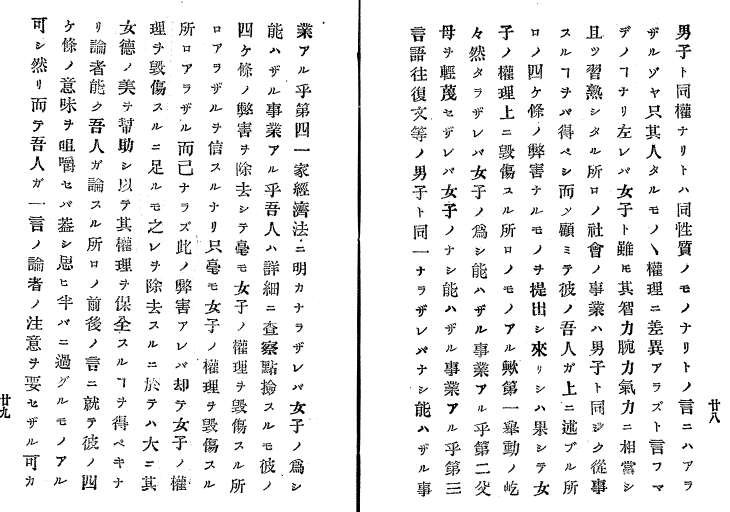 男子ト同權ナリトハ同性質ノモノナリトノ言ニハアラ
ザルゾヤ只其人タルモノヽ權理ニ差異アラズト言フマ
デノヿナリ左レバ女子ト雖モ其智力腕力氣力ニ相當シ
且ツ習熟シタル所ロノ社會ノ事業ハ男子ト同ジク從事
スルヿヲバ得ベシ而ソ顧ミテ彼ノ吾人ガ上ニ述ブル所
ロノ四ケ條ノ弊害ナルモノヲ提出シ來リシハ果シテ女
子ノ權理上ニ毀傷スル所ロノモノアル歟第一擧動ノ屹
々然タラザレバ女子ノ爲シ能ハザル事業アル乎第二父
母ヲ輕蔑セザレバ女子ノナシ能ハザル事業アル乎第三
言語往復文等ノ男子ト同一ナラザレバナシ能ハザル事
廿八
業アル乎第四一家經濟法ニ明カナラザレバ女子ノ爲シ
能ハザル事業アル乎吾人ハ詳細ニ査察點撿スルモ彼ノ
四ケ條ノ弊害ヲ除去シテ毫モ女子ノ權理ヲ毀傷スル所
ロアラザルヲ信スルナリ只毫モ女子ノ權理ヲ毀傷スル
所ロアラザル而已ナラズ此ノ弊害アレバ却テ女子ノ權
理ヲ毀傷スルニ足ルモ之レヲ除去スルニ於テハ大ニ其
女德ノ美ヲ幇助シ以テ其權理ヲ保全スルヿヲ得ベキナ
リ論者能ク吾人ガ論スル所ロノ前後ノ言ニ就テ彼ノ四
ケ條ノ意味ヲ咀嚼セバ葢シ思ヒ半バニ過グルモノアル
可シ然リ而テ吾人ガ一言ノ論者ノ注意ヲ要セザル可カ
廿九